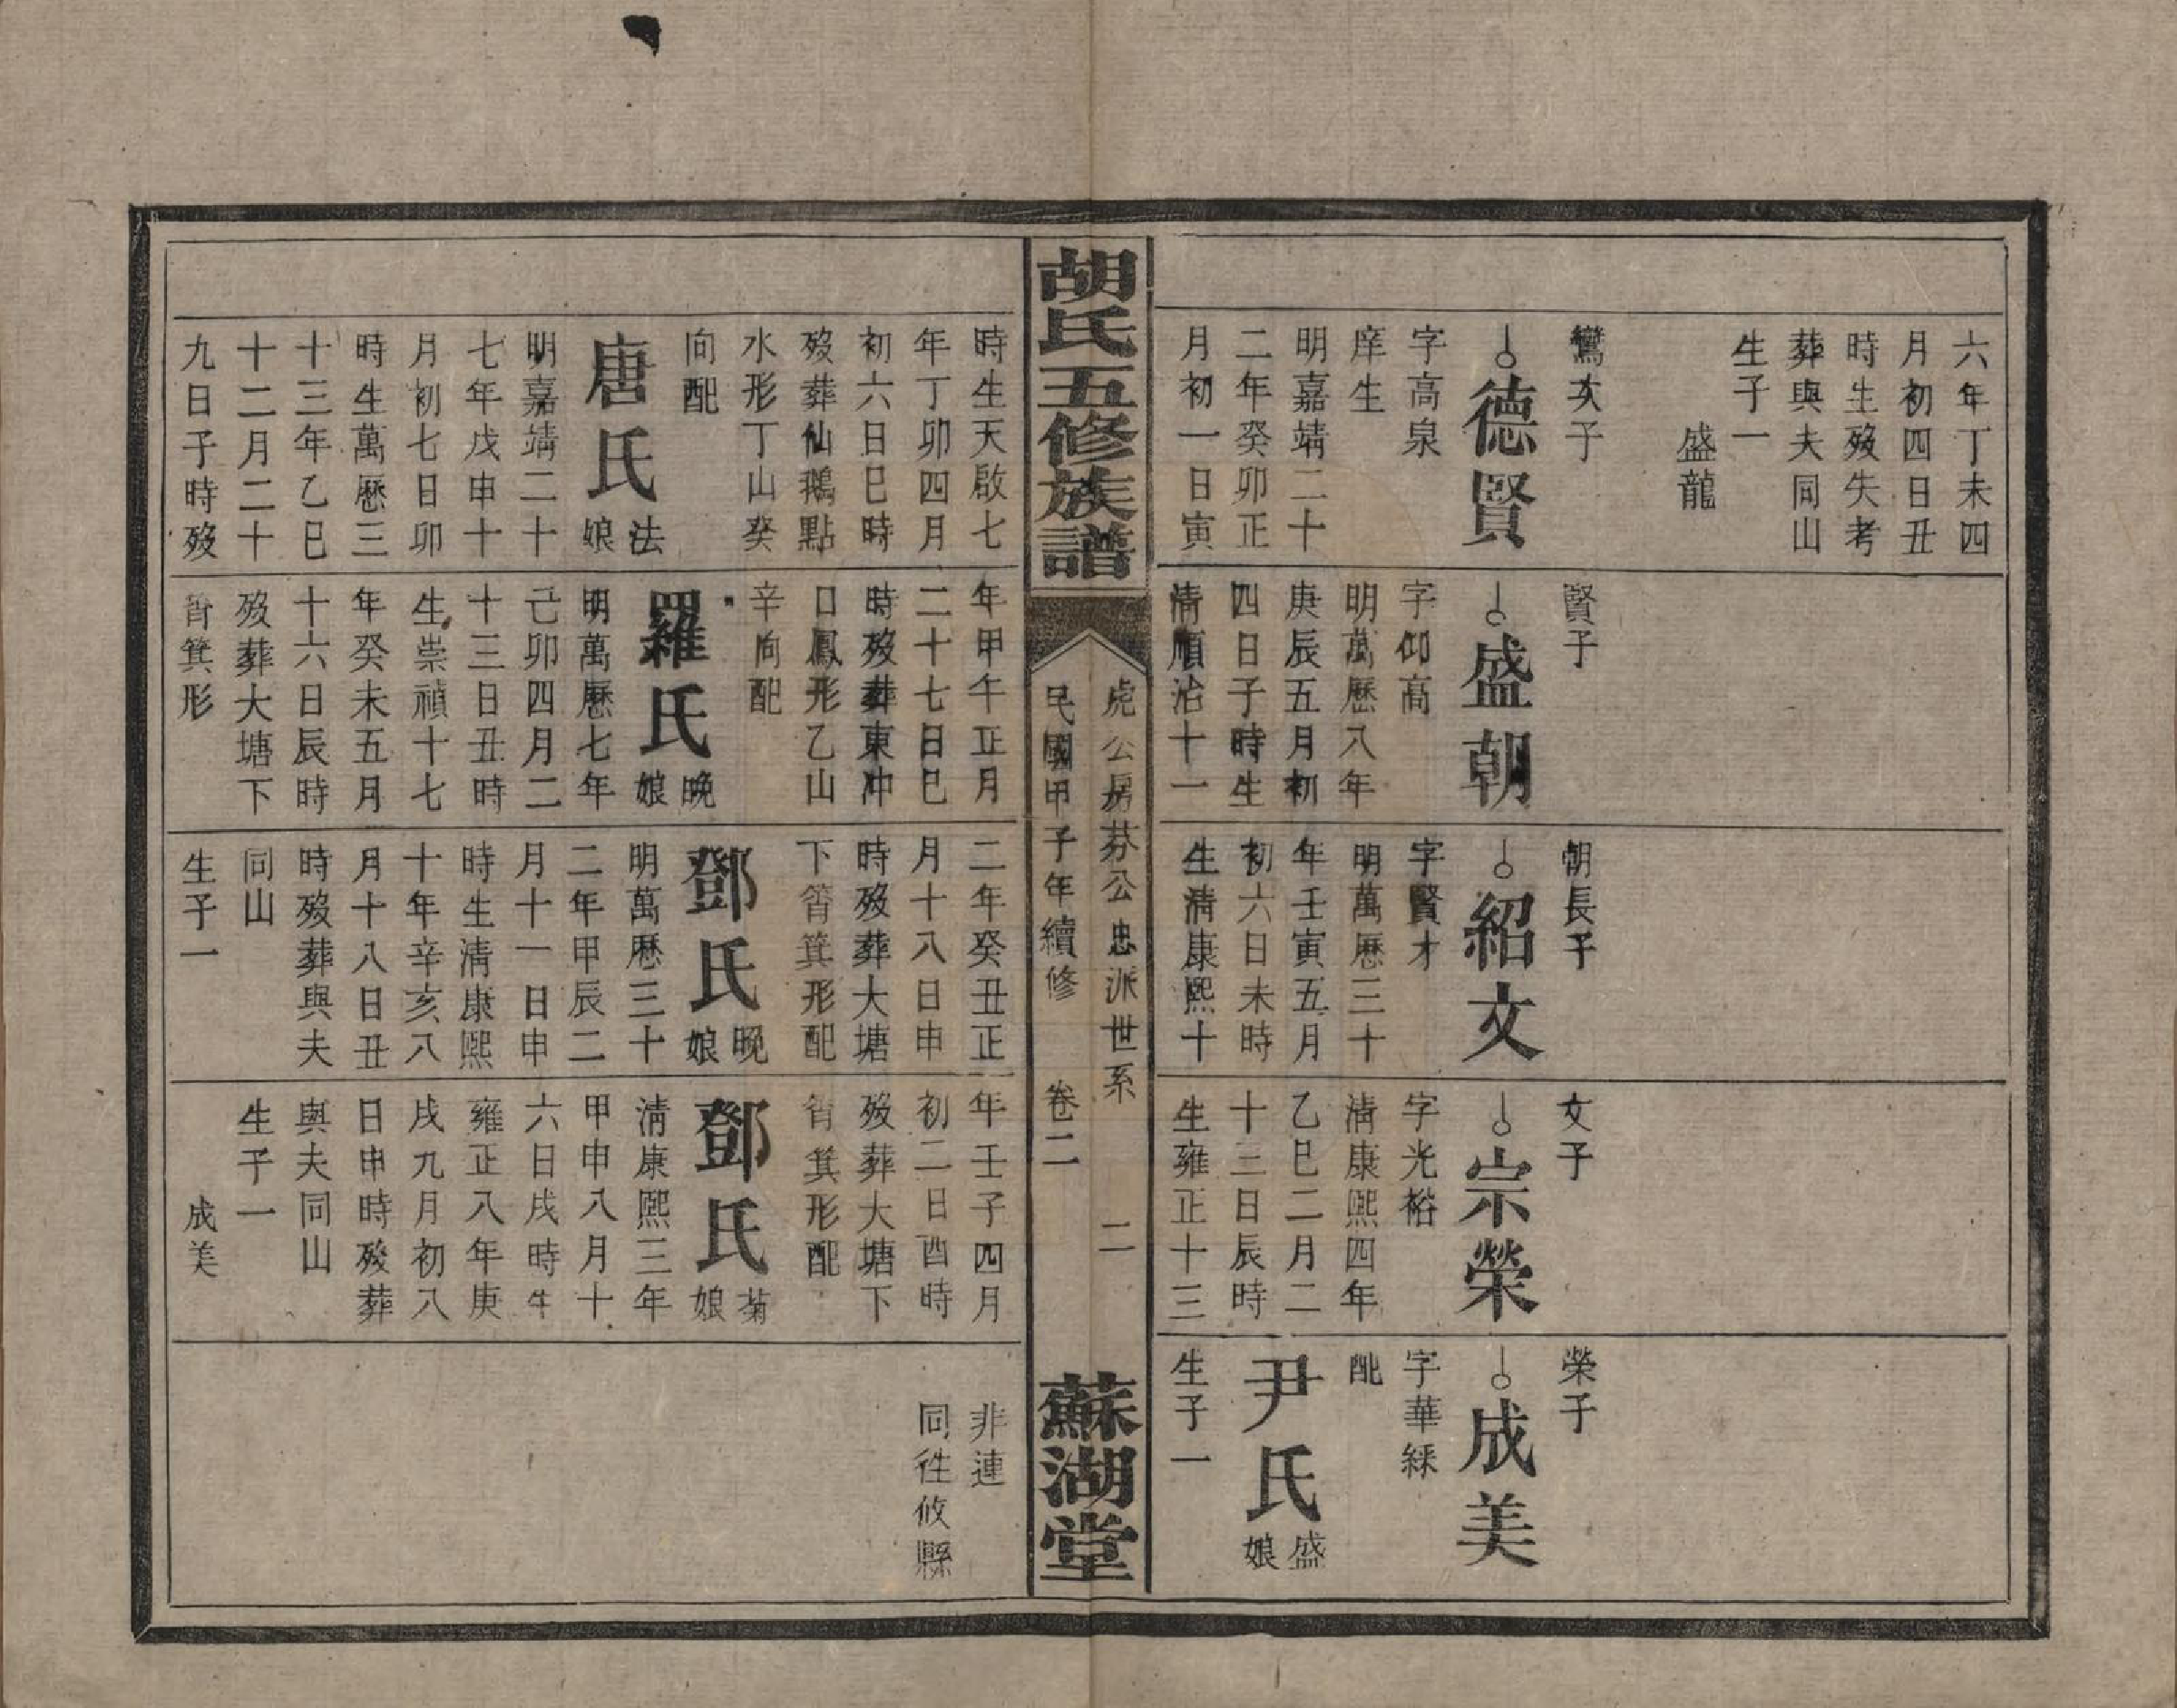 六年丁未四
月初四日丑
時生歿失考
葬與夫同山
生子一
盛龍
鸞次子
德賢
字高泉
庠生
明嘉靖二十
二年癸卯正
月初一日寅
賢子
盛朝
字仰高
明萬歷八年
庚辰五月初
四日子時生
清順治十一
朝長子
紹文
字賢才
明萬歷三十
年壬寅五月
初六日未時
生清康熙十
文子
宗榮
字光裕
清康熙四年
乙巳二月二
十三日辰時
生雍正十三
榮子
成美
字華綵
配
尹氏盛娘
生子一
胡氏五修族譜
虎公房芬公忠派世系
民國甲子年續修
卷二
二
蘇湖堂
時生天啟七
年丁卯四月
初六日巳時
歿葬仙鵝點
水形丁山癸
向配
唐氏法娘
明嘉靖二十
七年戊申十
月初七日卯
時生萬歷三
十三年乙巳
十二月二十
九日子時歿
年甲午正月
二十七日巳
時歿葬東冲
口鳳形乙山
辛向配
羅氏晚娘
明萬歷七年
己卯四月二
十三日丑時
生崇禎十七
年癸未五月
十六日辰時
歿葬大塘下
筲箕形
二年癸丑正
月十八日申
時歿葬大塘
下筲箕形配
鄧氏晚娘
明萬歷三十
二年甲辰二
月十一日申
時生清康熙
十年辛亥八
月十八日丑
時歿葬與夫
同山
生子一
年壬子四月
初二日酉時
歿葬大塘下
筲箕形配
鄧氏菊娘
清康熙三年
甲申八月十
六日戌時生
雍正八年庚
戌九月初八
日申時歿葬
與夫同山
生子一
成美
非連
同徃攸縣